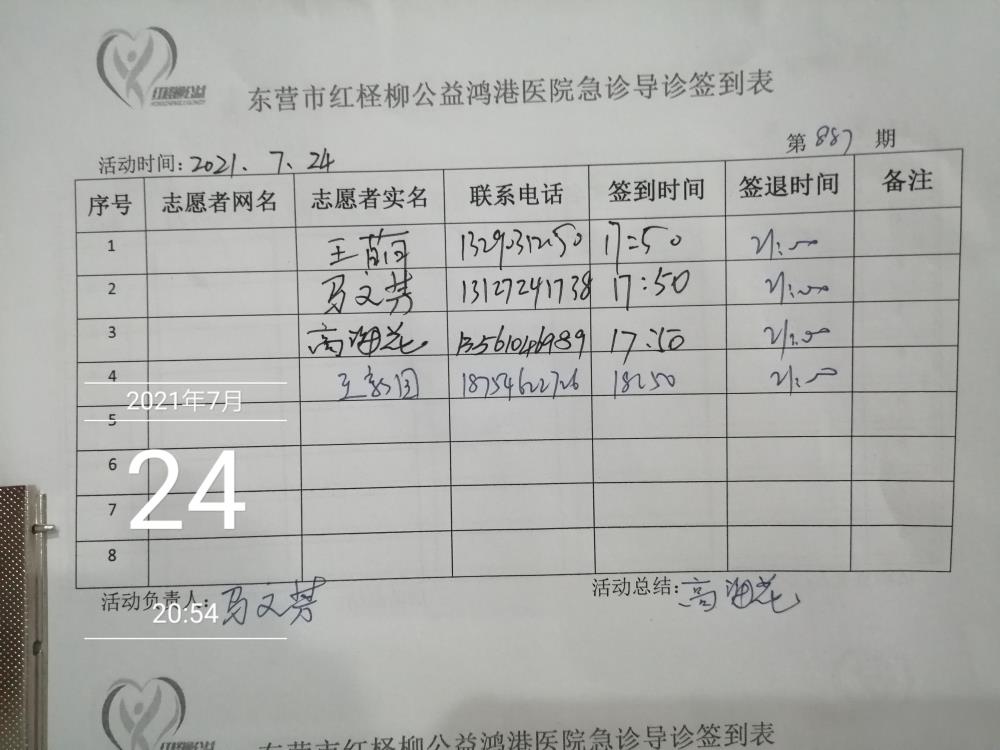 东营市红柽柳公益鸿港医院急诊导诊签到表
活动时间: 2021. 7. 24 第 887 期
序号 志愿者网名 志愿者实名 联系电话 签到时间 签退时间 备注
1 王 17:50 21:00
2 马文梦 13127241738 17:50 21:00
3 高海花 13561046989 17:50 21:00
4 王 18754622726 18:50 21:00
2021年7月
5
6
24
7
8
活动负责人: 马文梦 活动总结: 高海花
20:54
东营市红柽柳公益鸿港医院急诊导诊签到表